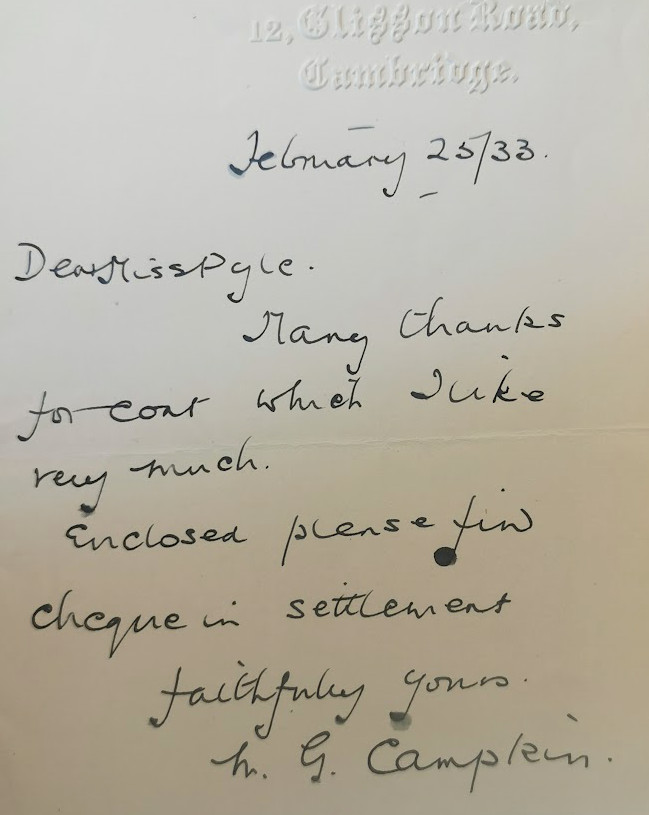 12, Glisson Road,
Cambridge.
February 25/33.
Dear Miss Pyle.
Many thanks
for coat which I like
very much.
Enclosed please find
cheque in settlement
faithfully yours.
M. G. Campkin.